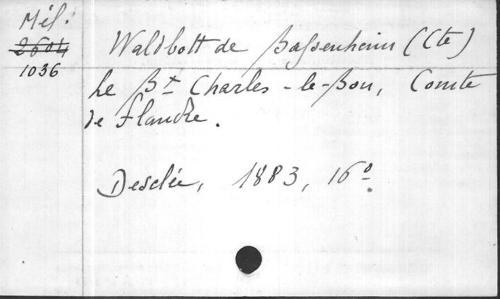 Mél.
2604
1036
Waldbott de Bassenheim (Cte)
Le Bx Charles-le-Bon, Comte
de Flandre.
Desclée, 1883, 16o.